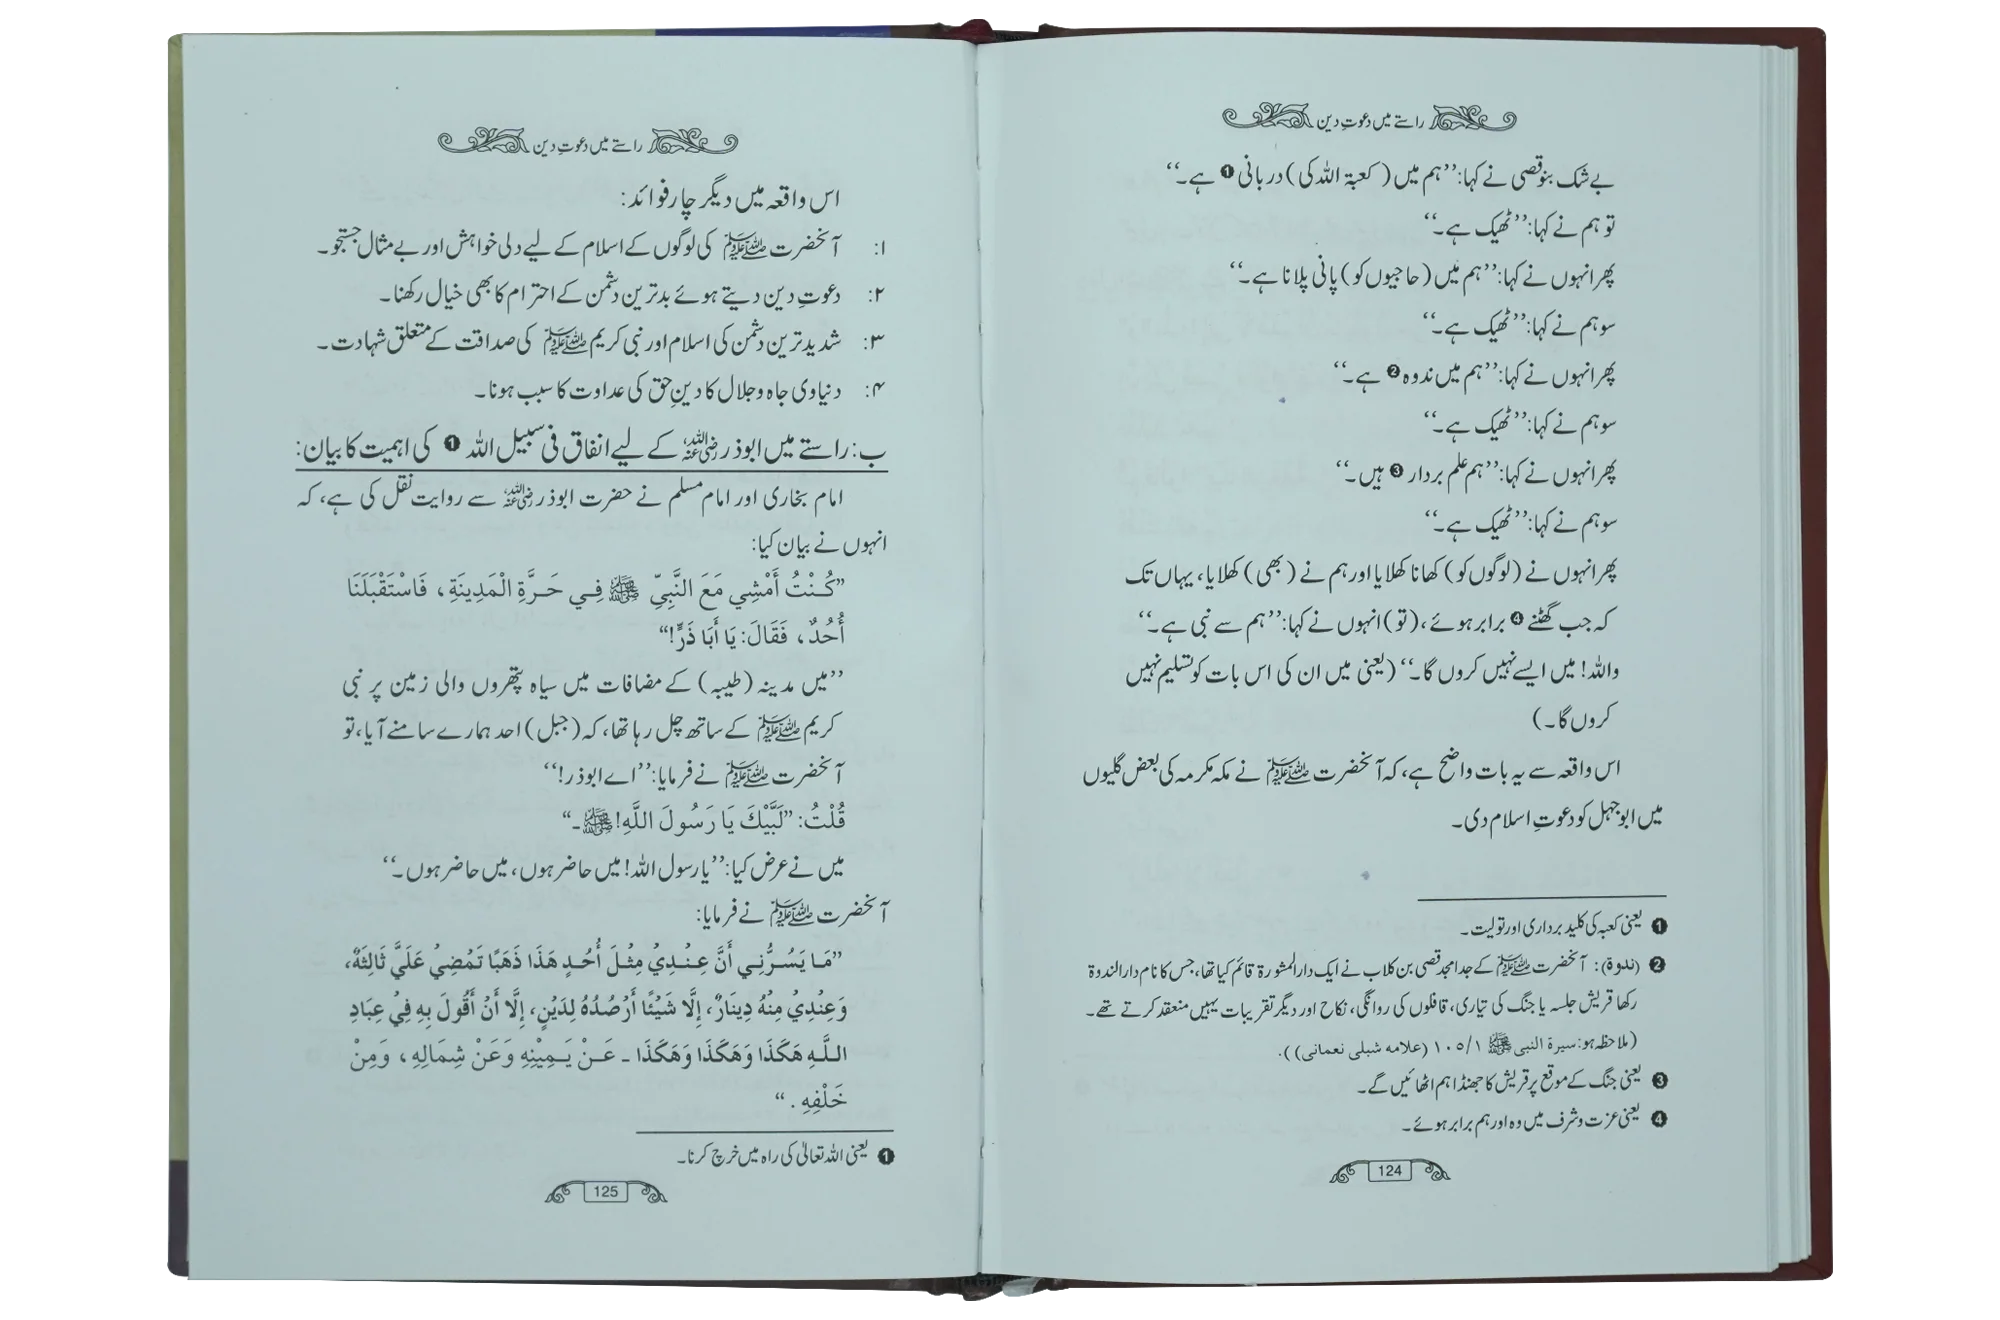 راستے میں دعوتِ دین
بے شک بنوقصی نے کہا: ’’ہم میں (کعبۃ اللہ کی) دربانی ❶ ہے۔‘‘
تو ہم نے کہا: ’’ٹھیک ہے۔‘‘
پھر انہوں نے کہا: ’’ہم میں (حاجیوں کو) پانی پلانا ہے۔‘‘
سو ہم نے کہا: ’’ٹھیک ہے۔‘‘
پھر انہوں نے کہا: ’’ہم میں ندوہ ❷ ہے۔‘‘
سو ہم نے کہا: ’’ٹھیک ہے۔‘‘
پھر انہوں نے کہا: ’’ہم علم بردار ❸ ہیں۔‘‘
سو ہم نے کہا: ’’ٹھیک ہے۔‘‘
پھر انہوں نے (لوگوں کو) کھانا کھلایا اور ہم نے (بھی) کھلایا، یہاں تک
کہ جب گھٹنے ❹ برابر ہوئے، (تو) انہوں نے کہا: ’’ہم سے نبی ہے۔‘‘
واللہ! میں ایسے نہیں کروں گا۔‘‘ (یعنی میں ان کی اس بات کو تسلیم نہیں
کروں گا۔)
اس واقعہ سے یہ بات واضح ہے، کہ آنحضرت ﷺ نے مکہ مکرمہ کی بعض گلیوں
میں ابوجہل کو دعوتِ اسلام دی۔
❶ یعنی کعبہ کی کلید برداری اور تولیت۔
❷ (ندوۃ): آنحضرت ﷺ کے جد امجد قصی بن کلاب نے ایک دارالمشورۃ قائم کیا تھا، جس کا نام دارالندوۃ
رکھا قریش جلسہ یا جنگ کی تیاری، قافلوں کی روانگی، نکاح اور دیگر تقریبات یہیں منعقد کرتے تھے۔
(ملاحظہ ہو: سیرۃ النبی ﷺ ۱/۱۰۵ (علامہ شبلی نعمانی)).
❸ یعنی جنگ کے موقع پر قریش کا جھنڈا ہم اٹھائیں گے۔
❹ یعنی عزت و شرف میں وہ اور ہم برابر ہوئے۔
124
راستے میں دعوتِ دین
اس واقعہ میں دیگر چار فوائد:
۱: آنحضرت ﷺ کی لوگوں کے اسلام کے لیے دلی خواہش اور بے مثال جستجو۔
۲: دعوتِ دین دیتے ہوئے بدترین دشمن کے احترام کا بھی خیال رکھنا۔
۳: شدید ترین دشمن کی اسلام اور نبی کریم ﷺ کی صداقت کے متعلق شہادت۔
۴: دنیاوی جاہ و جلال کا دینِ حق کی عداوت کا سبب ہونا۔
ب: راستے میں ابوذر رضی اللہ عنہ کے لیے انفاق فی سبیل اللہ ❶ کی اہمیت کا بیان:
امام بخاری اور امام مسلم نے حضرت ابوذر رضی اللہ عنہ سے روایت نقل کی ہے، کہ
انہوں نے بیان کیا:
”كُنْتُ أَمْشِي مَعَ النَّبِيِّ ﷺ فِي حَرَّةِ الْمَدِينَةِ، فَاسْتَقْبَلَنَا
أُحُدٌ، فَقَالَ: يَا أَبَا ذَرٍّ!“
’’میں مدینہ (طیبہ) کے مضافات میں سیاہ پتھروں والی زمین پر نبی
کریم ﷺ کے ساتھ چل رہا تھا، کہ (جبل) احد ہمارے سامنے آیا، تو
آنحضرت ﷺ نے فرمایا: ’’اے ابوذر!‘‘
قُلْتُ: ”لَبَّيْكَ يَا رَسُولَ اللَّهِ! ﷺ۔“
میں نے عرض کیا: ’’یا رسول اللہ! میں حاضر ہوں، میں حاضر ہوں۔‘‘
آنحضرت ﷺ نے فرمایا:
”مَا يَسُرُّنِي أَنَّ عِنْدِيْ مِثْلَ أُحُدٍ هَذَا ذَهَبًا تَمْضِيْ عَلَيَّ ثَالِثَةٌ،
وَعِنْدِيْ مِنْهُ دِينَارٌ، إِلَّا شَيْئًا أَرْصُدُهُ لِدَيْنٍ، إِلَّا أَنْ أَقُولَ بِهِ فِيْ عِبَادِ
اللَّهِ هَكَذَا وَهَكَذَا وَهَكَذَا ـ عَنْ يَمِيْنِهِ وَعَنْ شِمَالِهِ، وَمِنْ
خَلْفِهِ.“
❶ یعنی اللہ تعالیٰ کی راہ میں خرچ کرنا۔
125